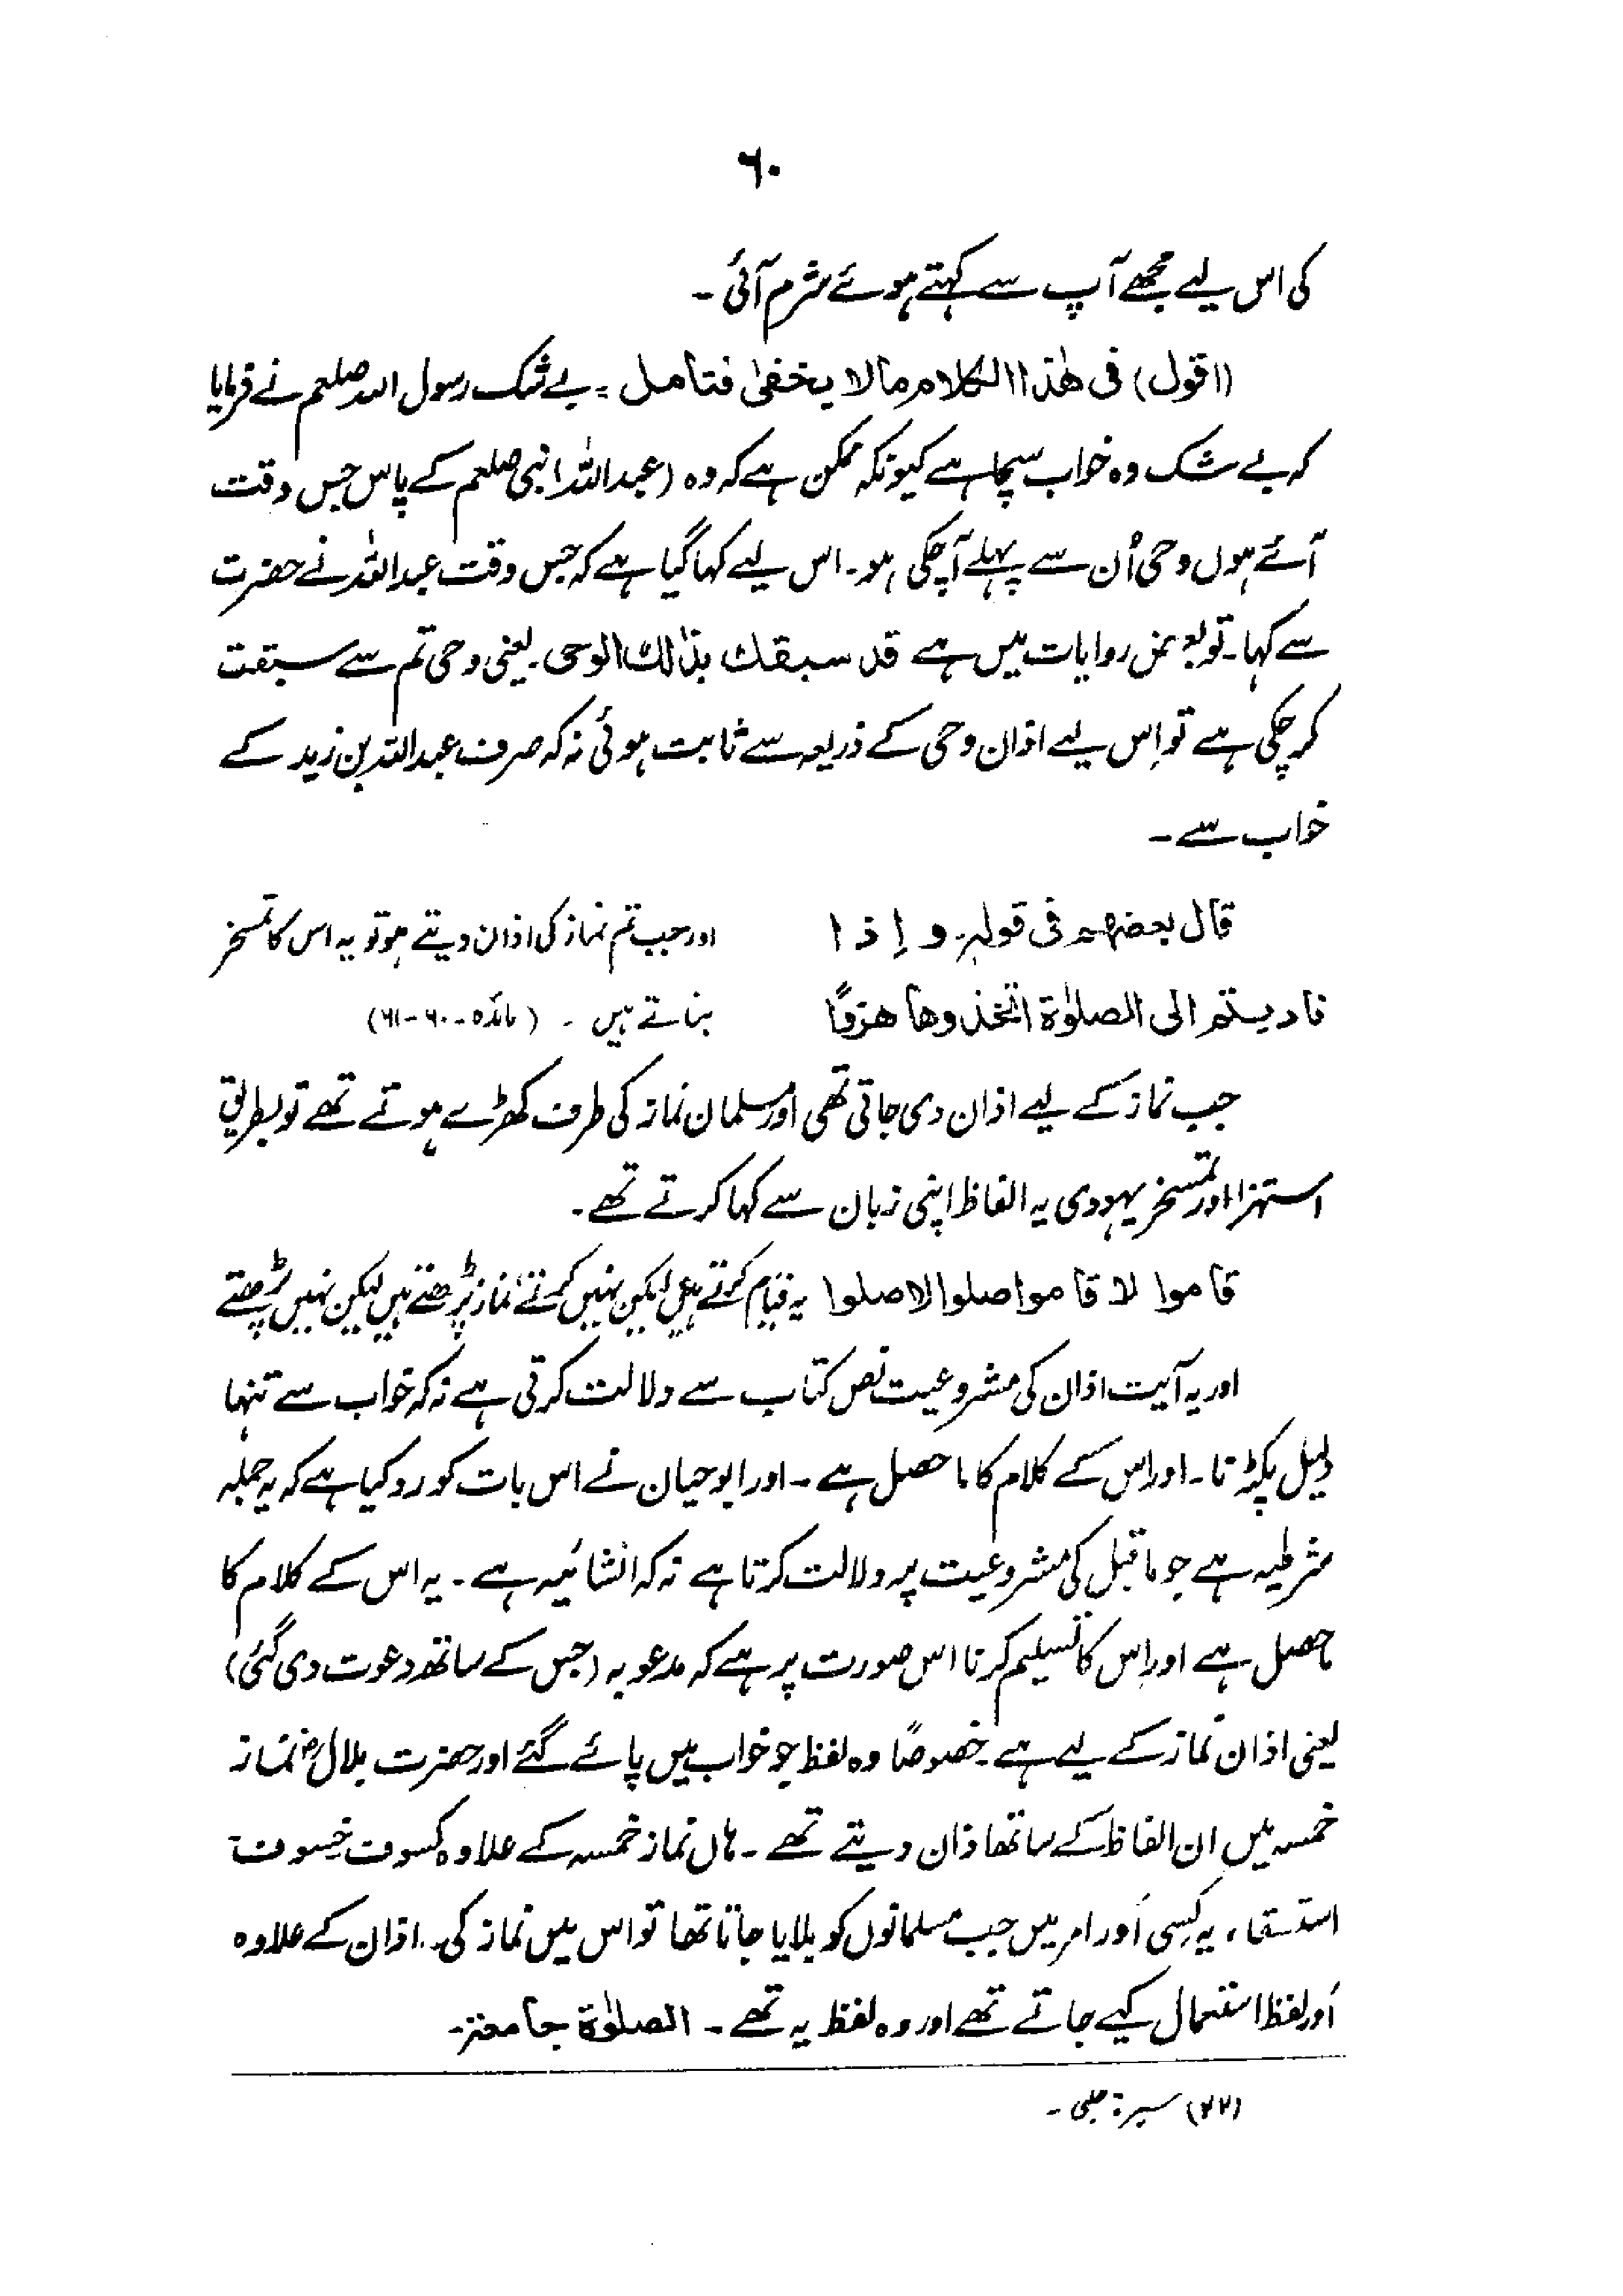 ۶۰
کی اس لیے مجھے آپ سے کہتے ہوئے شرم آئی ۔
(اقول) فی ھٰذا الکلام مالا یخفیٰ فتأمل ۔ بے شک رسول اللہ صلعم نے فرمایا
کہ بے شک وہ خواب سچا ہے کیونکہ ممکن ہے کہ وہ (عبداللہ) نبی صلعم کے پاس جس وقت
آئے ہوں وحی اُن سے پہلے آچکی ہو۔ اس لیے کہا گیا ہے کہ جس وقت عبداللہ نے حضرت
سے کہا۔ تو بعض روایات میں ہے قد سبقك بذٰلك الوحی۔ یعنی وحی تم سے سبقت
کرچکی ہے تو اِس لیے اذان وحی کے ذریعہ سے ثابت ہوئی نہ کہ صرف عبداللہ بن زید کے
خواب سے ۔
قال بعضھم فی قولہٖ۔ و إذا اور جب تم نماز کی اذان دیتے ہو تو یہ اس کا تمسخر
نادیتم الی الصلوٰة اتخذوھا ھزوًا بناتے ہیں ۔ (مائدہ ۔۶۰۔۶۱)
جب نماز کے لیے اذان دی جاتی تھی اور مسلمان نماز کی طرف کھڑے ہوتے تھے تو بطریق
استہزا اور تمسخر یہودی یہ الفاظ اپنی زبان سے کہا کرتے تھے۔
قاموا لا قاموا صلوا لا صلوا یہ قیام کرتے ہیں لیکن نہیں کرتے نماز پڑھتے ہیں لیکن نہیں پڑھتے
اور یہ آیت اذان کی مشروعیت نص کتاب سے دلالت کرتی ہے نہ کہ خواب سے تنہا
دلیل پکڑنا ۔ اور اس کے کلام کا ماحصل ہے ۔ اور ابوحیان نے اس بات کو رد کیا ہے کہ یہ جملہ
شرطیہ ہے جو ماقبل کی مشروعیت پر دلالت کرتا ہے نہ کہ انشائیہ ہے ۔ یہ اس کے کلام کا
ماحصل ہے اور اِس کا تسلیم کرنا اس صورت پر ہے کہ مدعو بہ (جس کے ساتھ دعوت دی گئی)
یعنی اذان نماز کے لیے ہے ۔ خصوصًا وہ لفظ جو خواب میں پائے گئے اور حضرت بلالؓ نماز
خمسہ میں ان الفاظ کے ساتھ اذان دیتے تھے ۔ ہاں نماز خمسہ کے علاوہ کسوف خسوف
استسقاء، یہ کسی اَور امر میں جب مسلمانوں کو بلایا جاتا تھا تو اس میں نماز کی اذان کے علاوہ
اَور لفظ استعمال کیے جاتے تھے اور وہ لفظ یہ تھے ۔ الصلوٰة جامعۃ۔
(۲۲) سیرۃ حلبی ۔